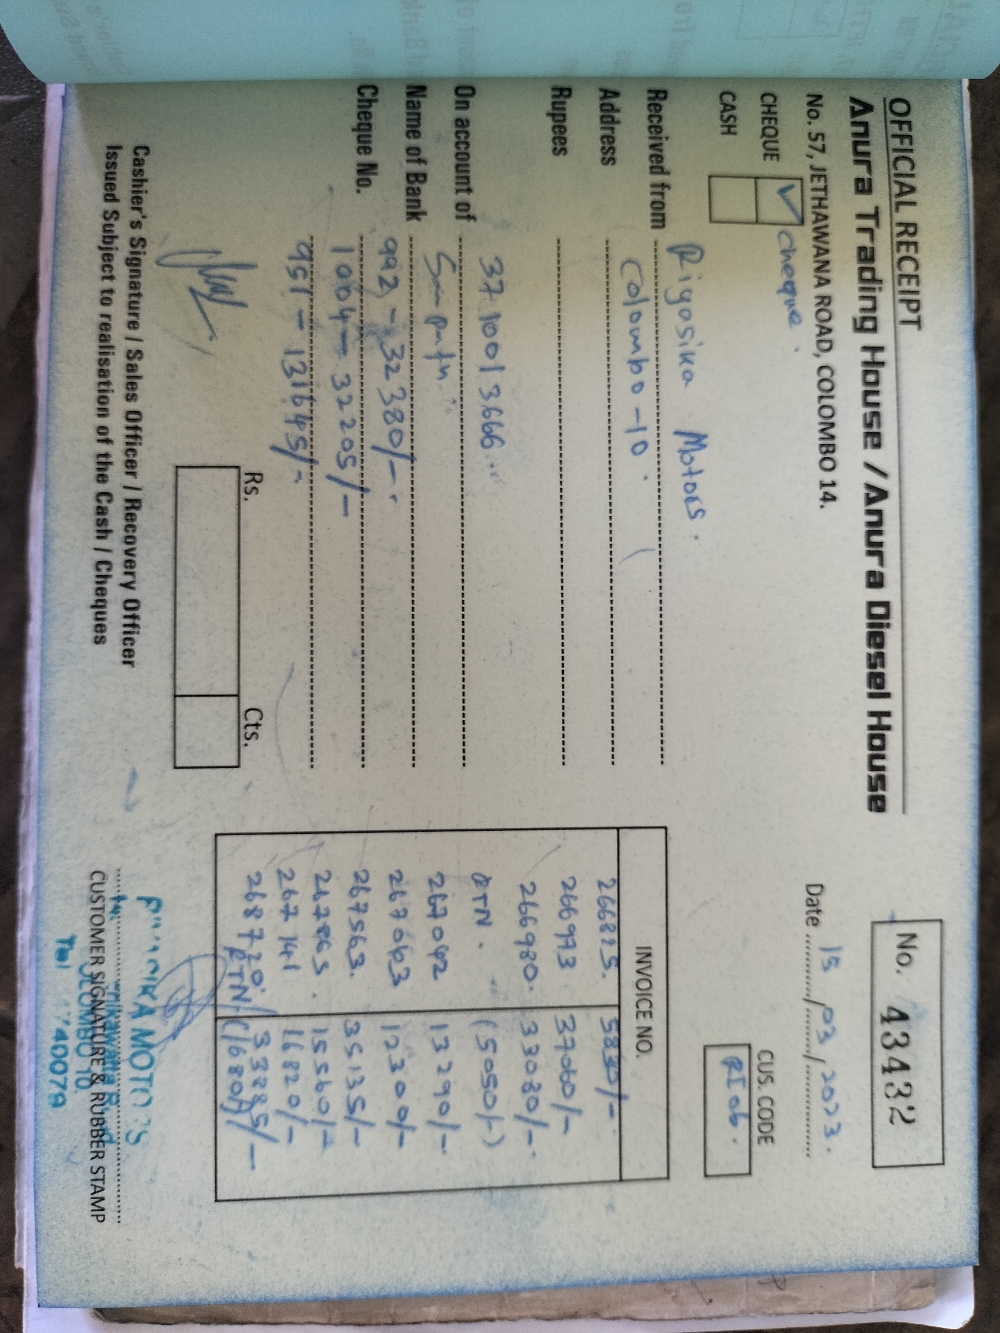 OFFICIAL RECEIPT
Anura Trading House / Anura Diesel House
No. 57, JETHAWANA ROAD, COLOMBO 14.
No. 43432
Date 15/03/2023.
CHEQUE ✓ cheque.
CASH
CUS. CODE
Received from Rigasika Motors.
Address Colombo-10.
Rupees
On account of 371001 3666
Name of Bank
Cheque No. 992 - 32380/-
1004 - 32205/-
951 - 131645/-
Rs. Cts.
INVOICE NO.
266825. 5830/-
266993 37060/-
266980. 33080/-
RTN. (5050/-)
267042 13290/-
267063 12300/-
267563. 35135/-
267865. 15560/-
267141 16820/-
268720. 33885/-
RTN (1680/-)
Cashier's Signature / Sales Officer / Recovery Officer
Issued Subject to realisation of the Cash / Cheques
CUSTOMER SIGNATURE & RUBBER STAMP